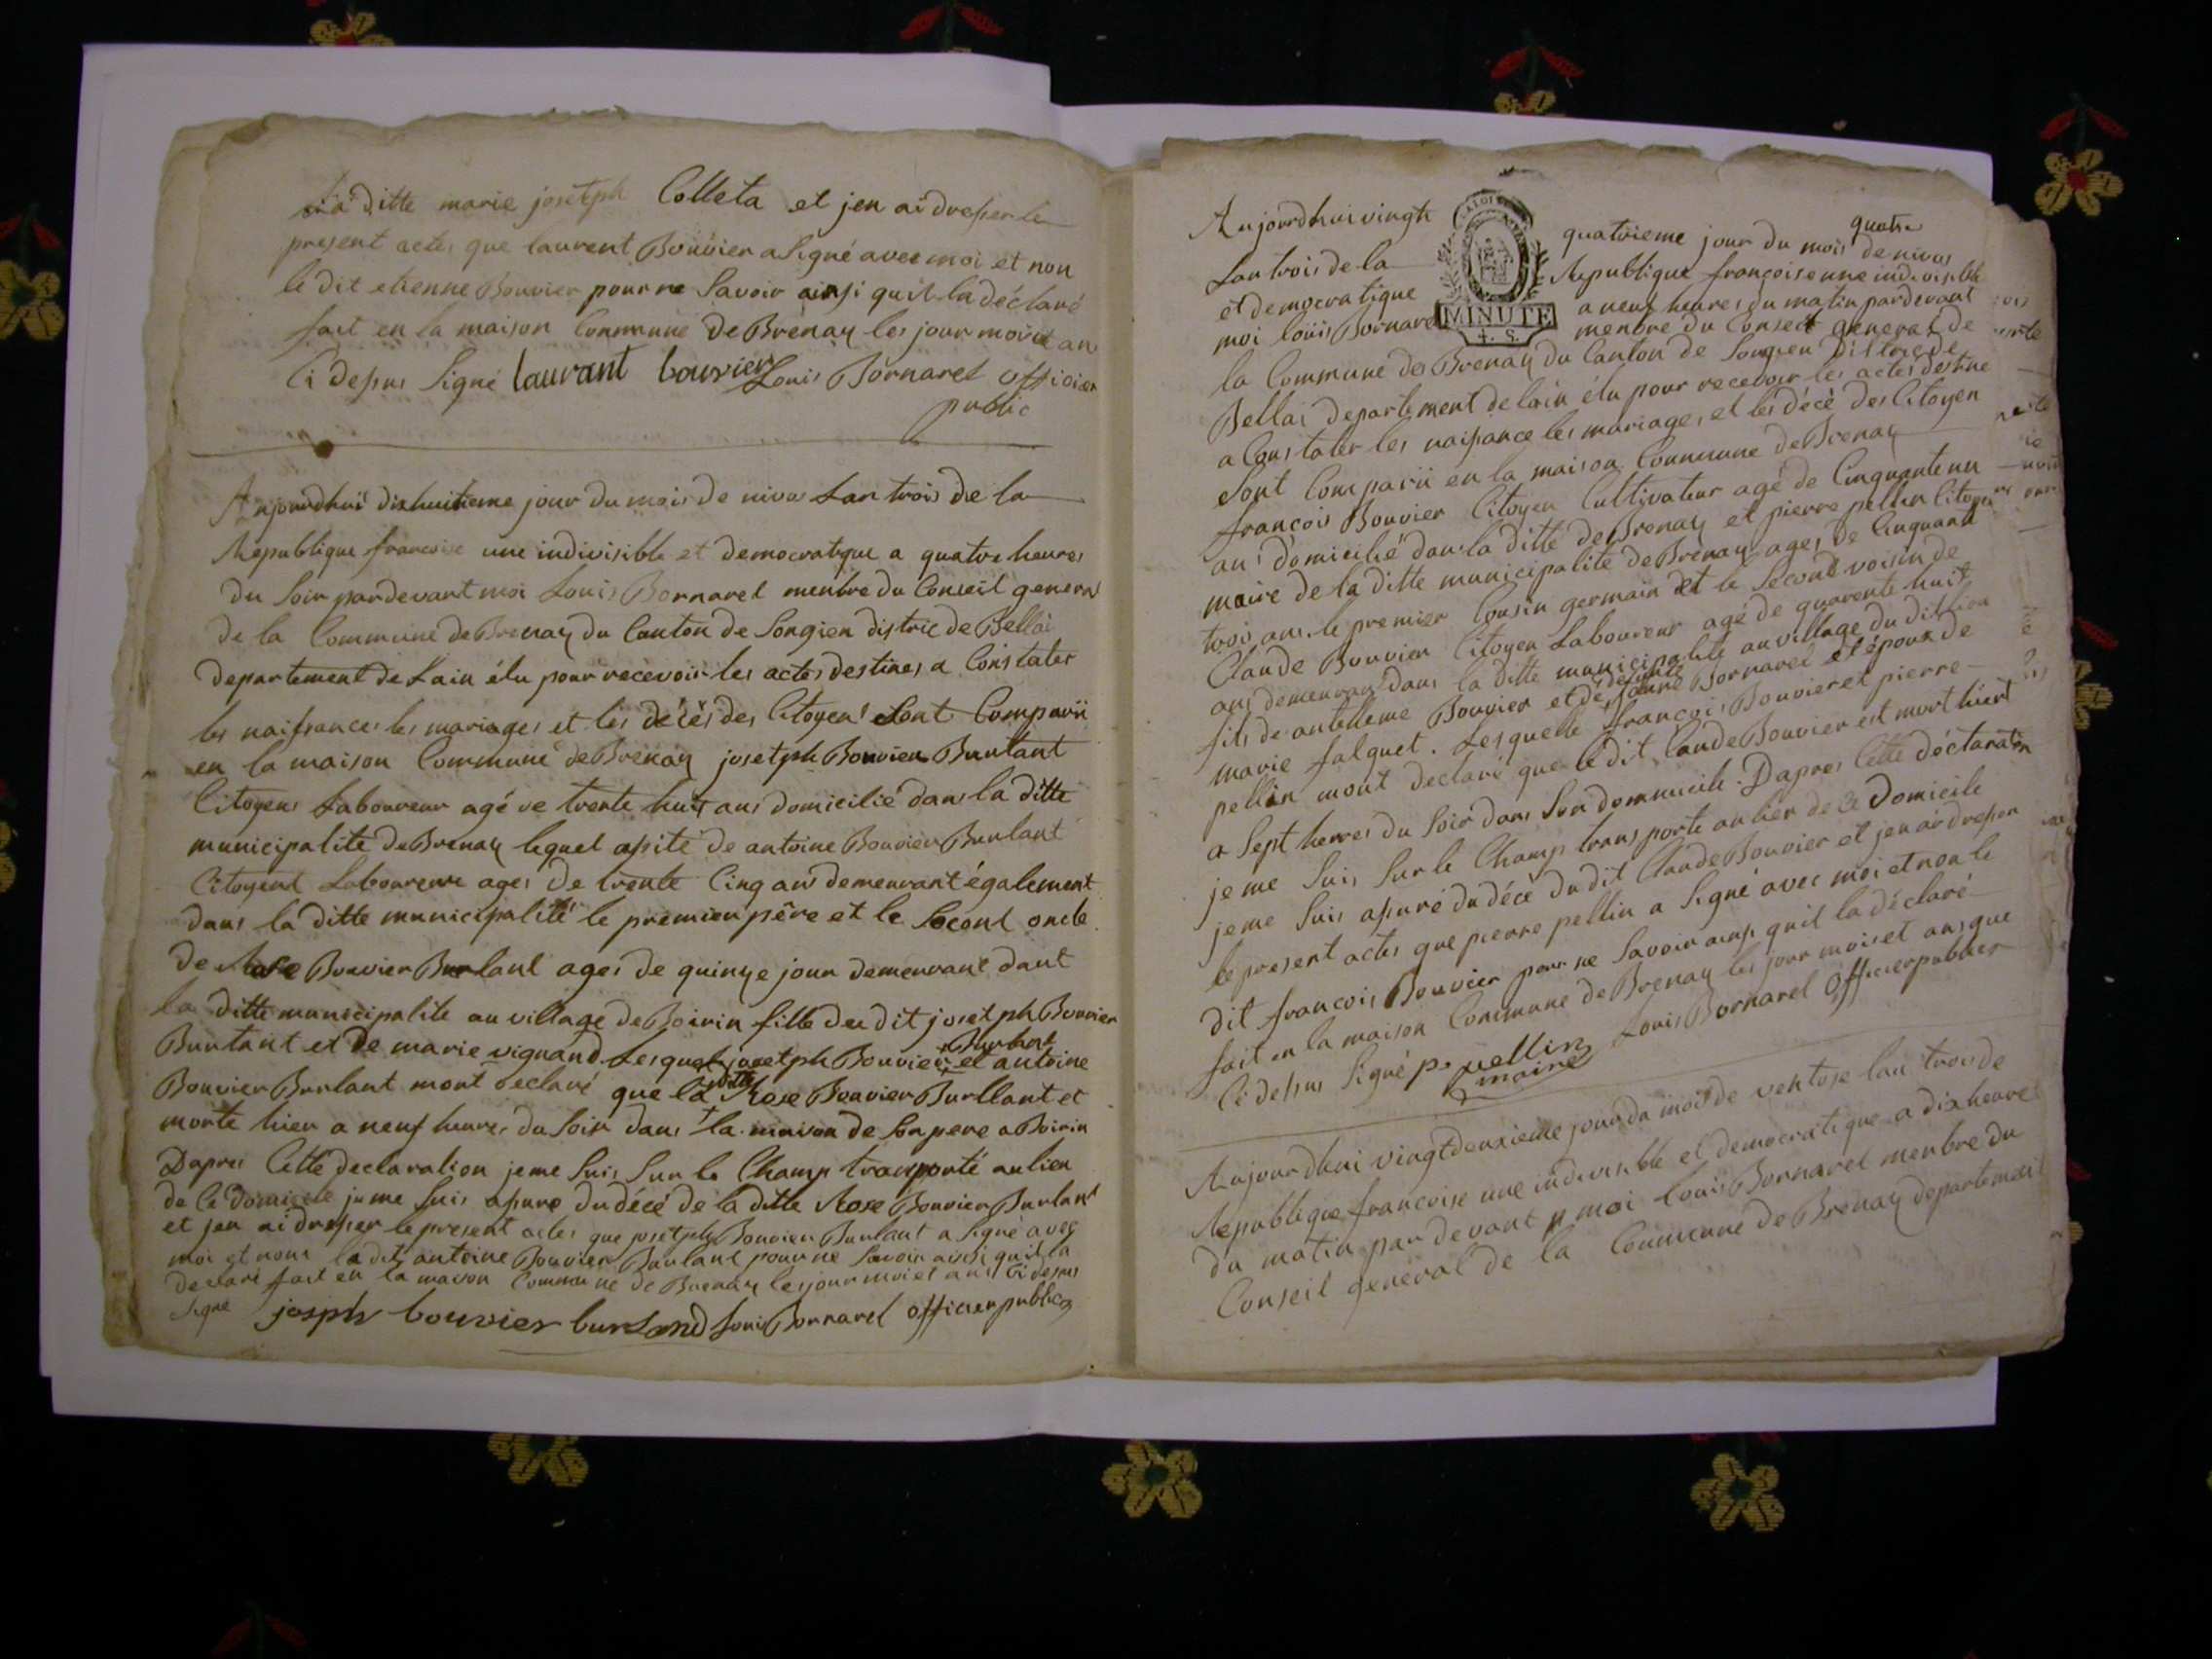 La ditte marie josetph Colleta et jen ai dresser le
present actes que laurent Bouvier a Signé avec moi et non
le dit etienne Bouvier pour ne Savoir ainsi quil la déclaré
fait en la maison Commune de Brénay les jour mois et an
Ci desus Signé laurant bouvier Louis Bornarel officier
public
Aujourdhui dixhuitieme jour du mois de nivos Lan trois de la
Republique francoise une indivisible et democratique a quatre heures
du Soir pardevant moi Louis Bornarel menbre du Conseil general
de la Commune de Brenay du Canton de Songieu distric de Bellai
departement de Lain élu pour recevoir les actes destines a Constater
les naissances les mariages et les décès des Citoyens Sont Comparü
en la maison Commune de Brénay josetph Bouvier Burlant
Citoyens Laboureur agé de trente huit ans domicilié dans la ditte
municipalité de Brenay lequel asité de antoine Bouvier Burlant
Citoyent Laboureure ages de trente Cinq ans demeurant également
dans la ditte municipalité le premier pére et le Secont oncle
de Rose Bouvier Burlant ages de quinze jour demeurant dant
la ditte municipalite au village de Boirin fille du dit josetph Bouvier
Burlant et de marie vignand Lesquels josetph Bouvier Burlant et antoine
Bouvier Burlant mont declaré que la ditte Rose Bouvier Burllant et
morte hier a neuf heures du Soir dans la maison de Son pere a Boirin
Dapres Cette declaration je me Suis Sur le Champ transporté au lieu
de Ce domicile je me Suis asure du décé de la ditte Rose Bouvier Burlant
et jen ai dresser le present actes que josetph Bouvier Burlant a Signé avec
moi et nom ledit antoine Bouvier Burlant pour ne Savoir ainsi quil la
declaré fait en la maison Commune de Brenay les jour mois et an Ci desus
Signé joseph bouvier burland Louis Bornarel officier public
Aujourdhui vingt quatrieme jour du mois de nivos quatre
Lan trois de la Republique françoise une indivisible
et democratique a neuf heures du matin pardevant
moi louis Bornarel MINUTE menbre du Conseil general de
4. S.
la Commune de Brenay du Canton de Songieu Distric de
Bellai departement de lain élu pour recevoir les actes destine
a Constater les naissance les mariages et les décé des Citoyen
Sont Comparü en la maison Commune de Brenay
françois Bouvier Citoyen Cultivateur agé de Cinquante un
ans domicilié dans la ditte de Brenay et pierre pellin Citoyens
maire de la ditte municipalité de Brénay ages de Cinquant
trois ans le premier Cousin germain et le Second voisin de
Claude Bouvier Citoyen Laboureur agé de quarente huit
ans demeurant dans la ditte municipalité au village du dit
fils de antelleme Bouvier et de defunte Bornarel et époux de
marie falquet. Lesquelle françois Bouvier et pierre
pellin mont declaré que le dit Claude Bouvier est mort hiert
a Sept heures du Soir dans Son dommicile. Dapres Cette déclaration
je me Suis Sur le Champ transporté au lier de Ce Domicile
je me Suis asuré du décé du dit Claude Bouvier et jen ai dresser
le present actes que pierre pellin a Signé avec moi et non le
dit francois Bouvier pour ne Savoir ainsi quil la déclaré
fait en la maison Commune de Brenay les jour mois et ans que
Ci desus Signé p. pellin Louis Bornarel Officier publier
maire
Aujourdhui vingtdeuxieme jour du mois de ventose lan trois de
Republique francoise une indivisible et democratique a dix heures
du matin par devant moi louis Bornarel menbre du
Conseil general de la Commune de Brenay departement